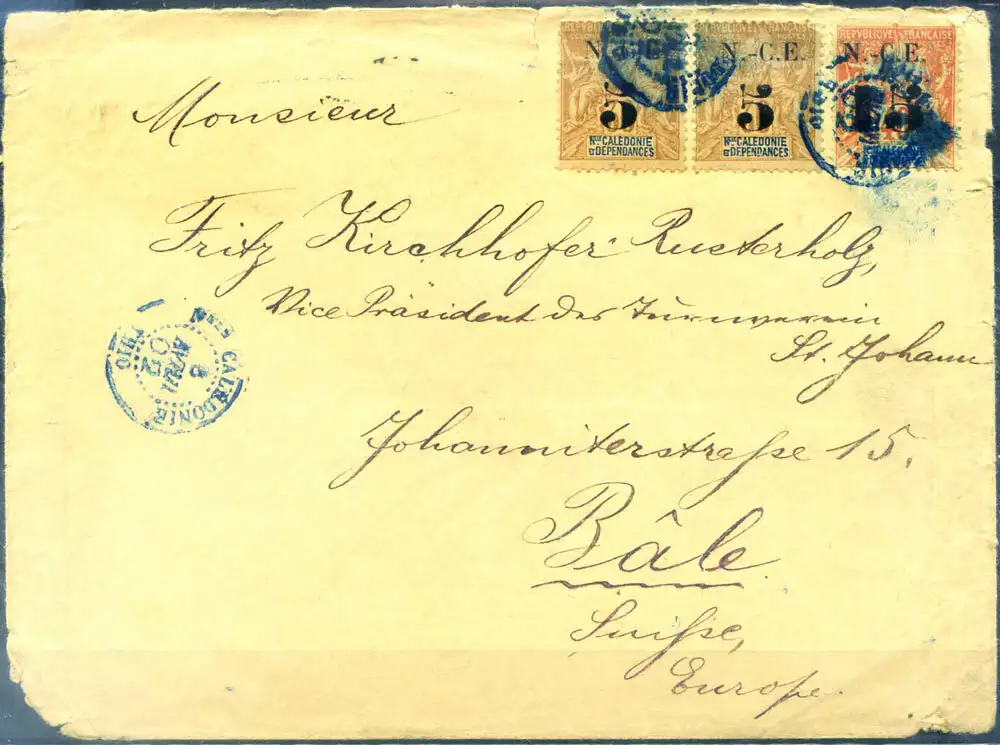 RÉPUBLIQUE FRANÇAISE
N.-C.E.
5
Nlle CALEDONIE
ET DÉPENDANCES
N.-C.E.
5
Nlle CALEDONIE
ET DÉPENDANCES
REPUBLIQUE FRANÇAISE
N.-C.E.
15
Monsieur
Fritz Kirchhofer-Rusterholz,
Vice Präsident des Turnverein
St. Johann
Johanniterstraſse 15.
Bâle
Suiſse,
Europe.
Nlle CALÉDONIE
8
AVRIL
02
THIO